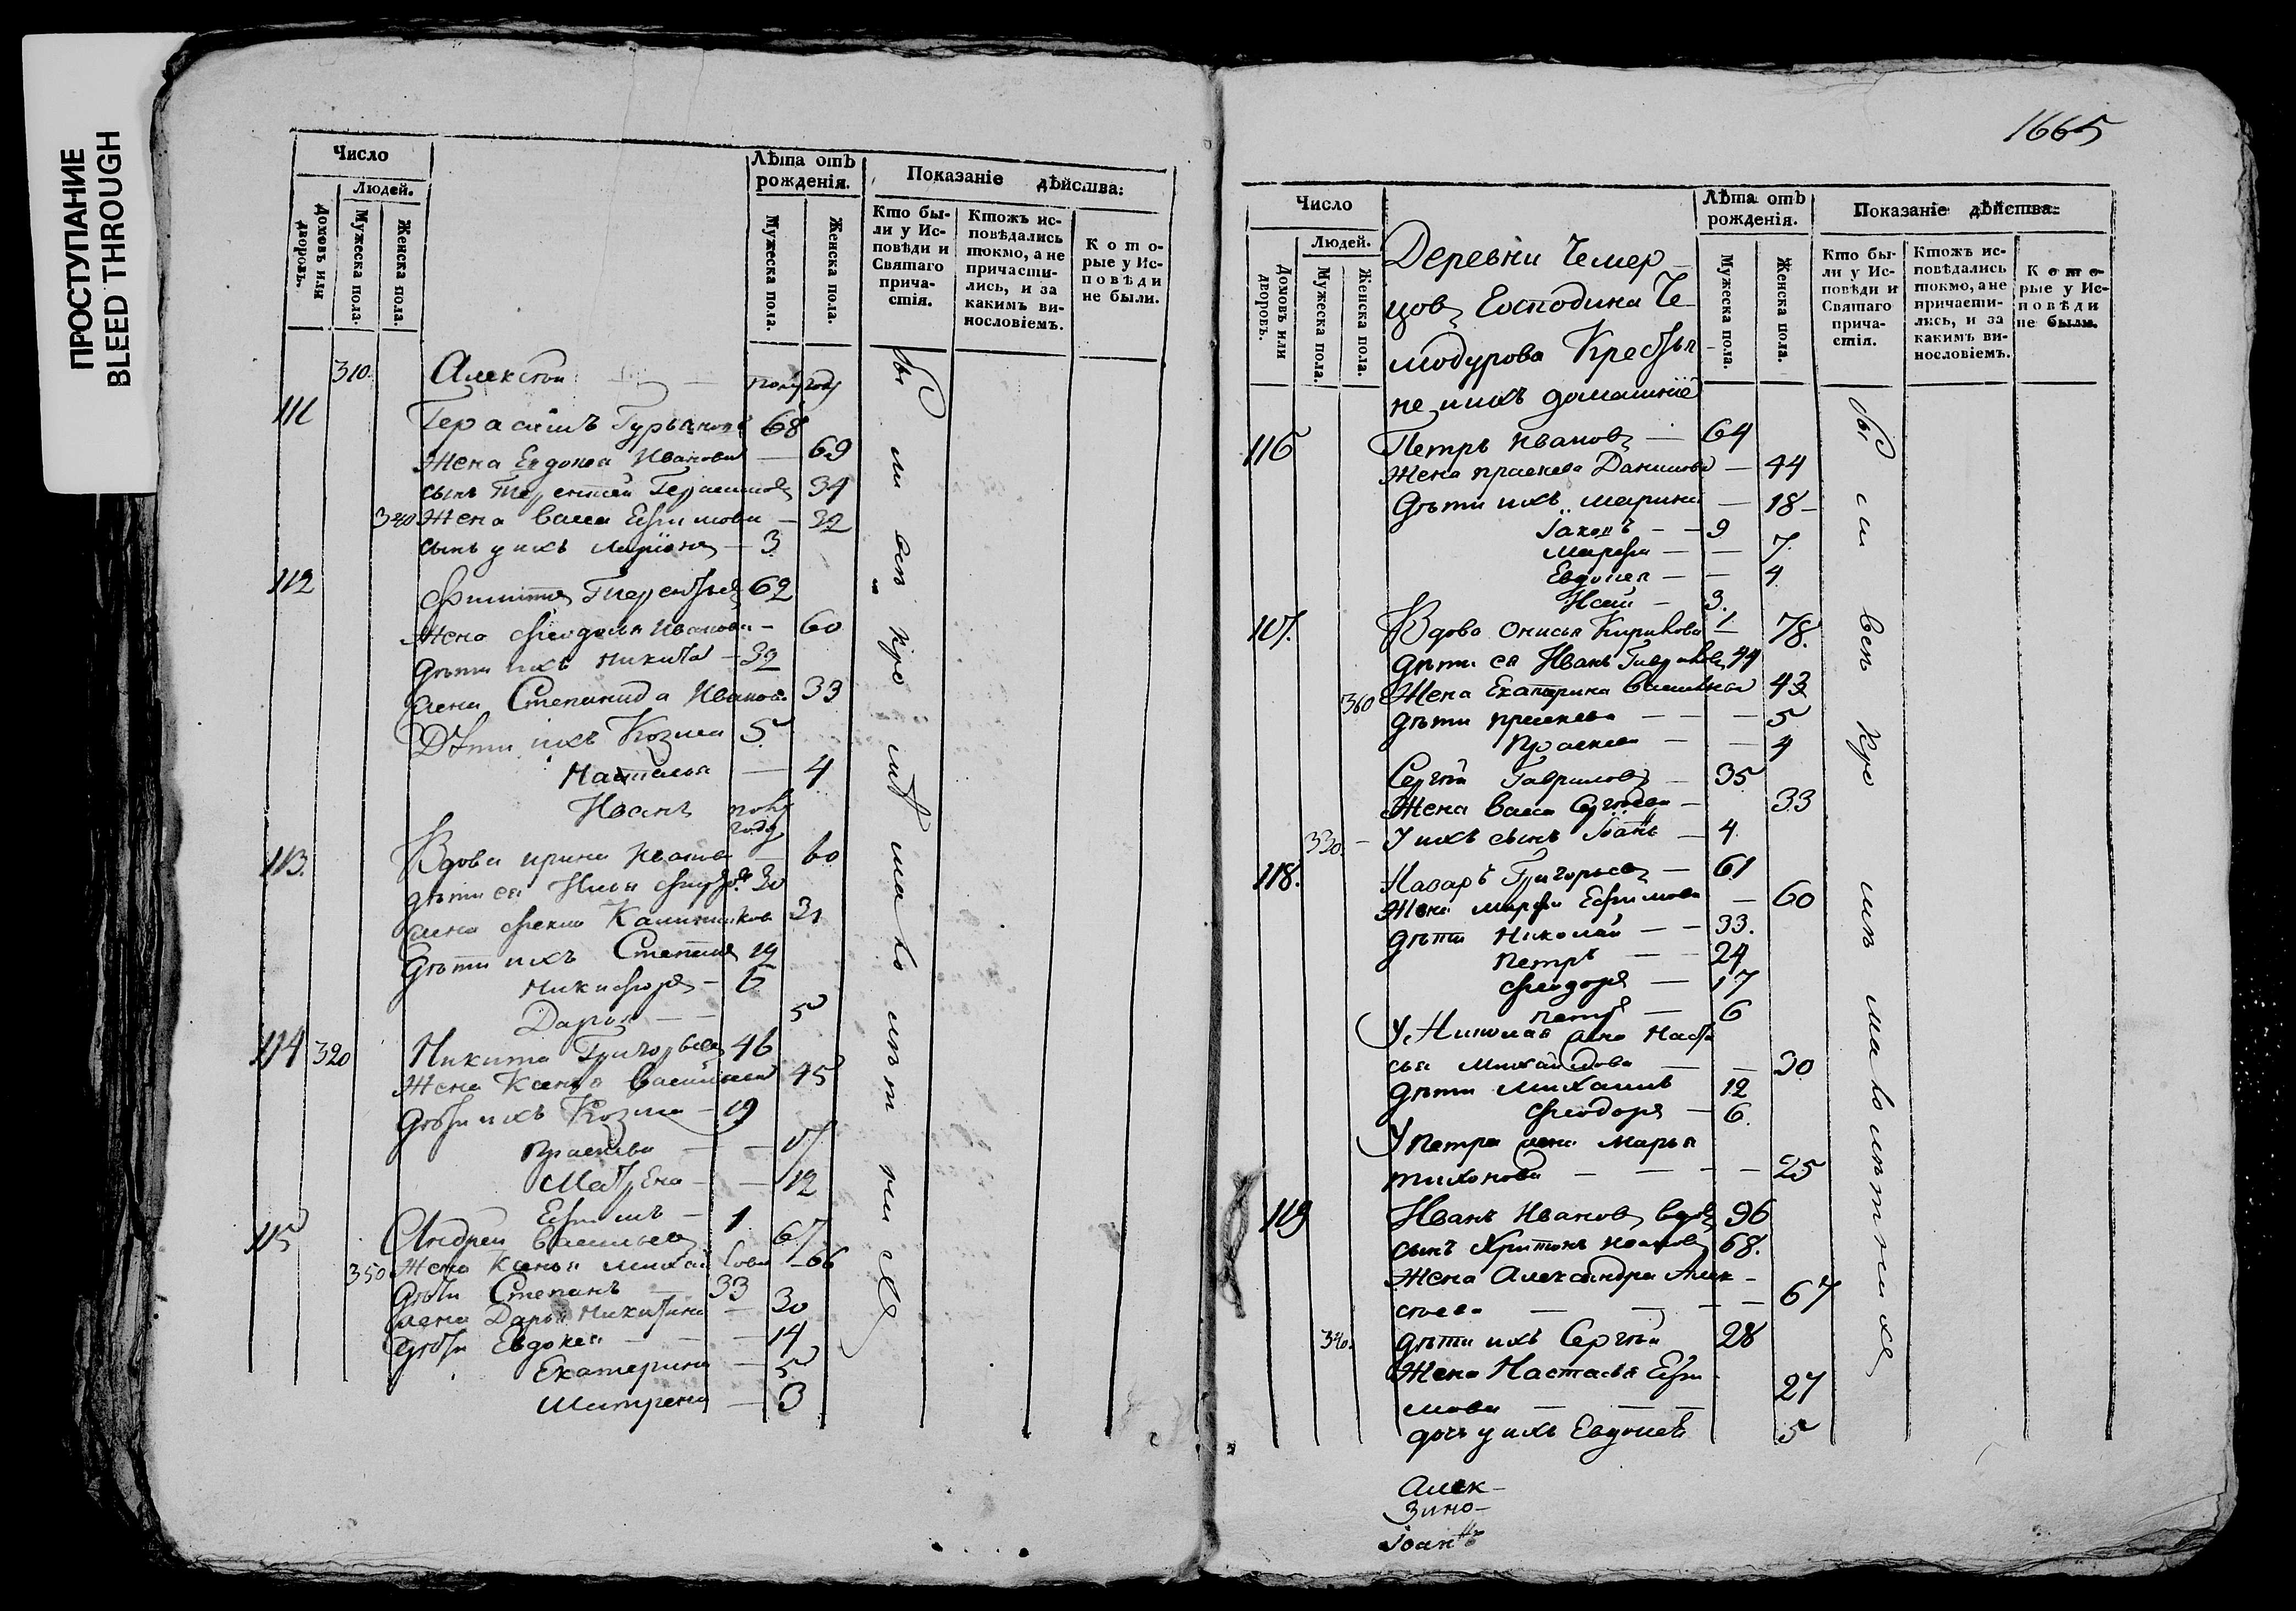 ПРОСТУПАНИЕ
BLEED THROUGH
Число
Людей.
Домовъ или дворовъ.
Мужеска пола.
Женска пола.
Лѣта отъ рожденія.
Мужеска пола.
Женска пола.
Показаніе дѣйства:
Кто бы-
ли у Ис-
повѣди и
Святаго
прича-
стія.
Ктожъ ис-
повѣдались
токмо, а не
причасти-
лись, и за
какимъ ви-
нословіемъ.
Кото-
рые у Ис-
повѣди
не были.
310. Алексѣй — полугоду
111 Герасимъ Гурьяновъ 68
Жена Евдокея Иванова — 69
сынъ Терентей Герасимовъ 34
340 Жена Васса Ефимова — 32
сынъ у ихъ Ларіонъ — 3
112 Филиппъ Терентьевъ 62
Жена Феодосья Иванова — 60
дѣти ихъ Никита — 32
жена Степанида Иванова 33
Дѣти ихъ Козма 5
Наталья — 4
Иванъ полугоду
113. Вдова Ирина Иванова — 60
дѣти ея Илья 30
жена Фекла 31
Дѣти ихъ Степанъ 19
Никифоръ — 6
Дарья — 5
114 320 Никита Григорьевъ 46
Жена Ксенья Васильева 45
дѣти ихъ Козма — 19
Праскева — 17
Матрена — 12
Ефимъ — 1
115 Андрей Васильевъ 67
350 Жена Ксенья Михайлова — 66
дѣти Степанъ — 33
жена Дарья Никитина — 30
дѣти Евдокея — 14
Екатерина — 5
Матрена — 3
Вси кромѣ малолѣтнихъ
1665
Число
Людей.
Домовъ или дворовъ.
Мужеска пола.
Женска пола.
Лѣта отъ рожденія.
Мужеска пола.
Женска пола.
Показаніе дѣйства:
Кто бы-
ли у Ис-
повѣди и
Святаго
прича-
стія.
Ктожъ ис-
повѣдались
токмо, а не
причасти-
лись, и за
какимъ ви-
нословіемъ.
Кото-
рые у Ис-
повѣди
не были.
Деревни Чемер-
цовъ Господина Че-
модурова Крестья-
не и ихъ домашніе
116 Петръ Ивановъ — 64
Жена Праскева Данилова — 44
Дѣти ихъ Марина — 18
Іаковъ — 9
Марфа — 7
Евдокея — 4
3.
117. Вдова Онисья Кирикова — 78.
дѣти ея Иванъ Гавриловъ 44
360 Жена Екатерина Васильева 43
дѣти Праскева — 5
Праскева — 4
Сергѣй Гавриловъ — 35
Жена Васса Сергѣева — 33
330. У ихъ сынъ Іоанъ — 4
118. Назаръ Григорьевъ — 61
Жена Марфа Ефимова — 60
дѣти Николай — 33.
Петръ — 24
Феодоръ — 17
Петръ — 6
У Николая жена Наста-
сья Михайлова — 30
дѣти Михаилъ 12
Феодоръ — 6.
У Петра жена Марья
Тихонова — 25
119 Иванъ Ивановъ вдовъ 96
сынъ Харитонъ Ивановъ 68.
Жена Александра Алек-
сѣева — 67
340. дѣти ихъ Сергѣй 28
Жена Настасья Ефи-
мова — 27
дочь у ихъ Евдокея 5
Были вси кромѣ малолѣтнихъ
Алек-
Зино-
Іоаннъ